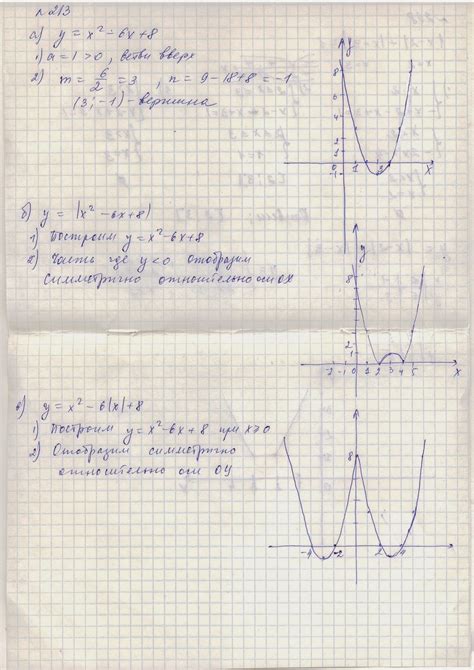 №213
а) y = x² - 6x + 8
1) a = 1 > 0, ветви вверх
2) m = 6/2 = 3, n = 9 - 18 + 8 = -1
(3; -1) - вершина
б) y = |x² - 6x + 8|
1) Построим y = x² - 6x + 8
2) Часть где y < 0 отобразим
симметрично относительно оси OX
в) y = x² - 6|x| + 8
1) Построим y = x² - 6x + 8 при x ≥ 0
2) Отобразим симметрично
относительно оси OY
y
8
2
1
-1
1
x
y
8
2
1
-2 -1 0 1 2 3 4 5 x
8
-4 -2 2 4